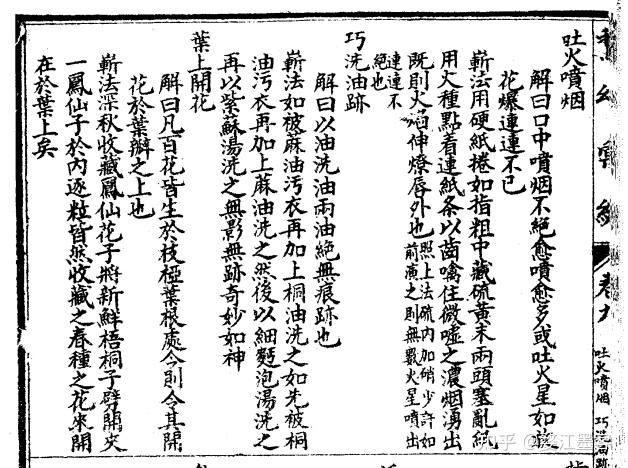 吐火噴烟
解曰口中噴烟不絕愈噴愈多或吐火星如放
花爆連連不已
嶄法用硬紙捲如指粗中藏硫黄末兩頭塞亂紙
用火種點着連紙条以齒噙住微噓之濃烟湧出
既則火焰伸燎唇外也照上法硫內加硝少許如前演之則無數火星噴出
連連不絕也
巧洗油跡
解曰以油洗油兩油絕無痕跡也
嶄法如被麻油汚衣再加上桐油洗之如先被桐
油汚衣再加上蔴油洗之然後以細麪泡湯洗之
再以紫蘇湯洗之無影無跡奇妙如神
葉上開花
解曰凡百花皆生於枝椏葉根處今則令其開
花於葉瓣之上也
嶄法深秋收藏鳳仙花子將新鮮梧桐子劈開夾
一鳳仙子於內逐粒皆然收藏之春種之花來開
在於葉上矣
卷九
吐火噴烟
巧洗油跡
知乎